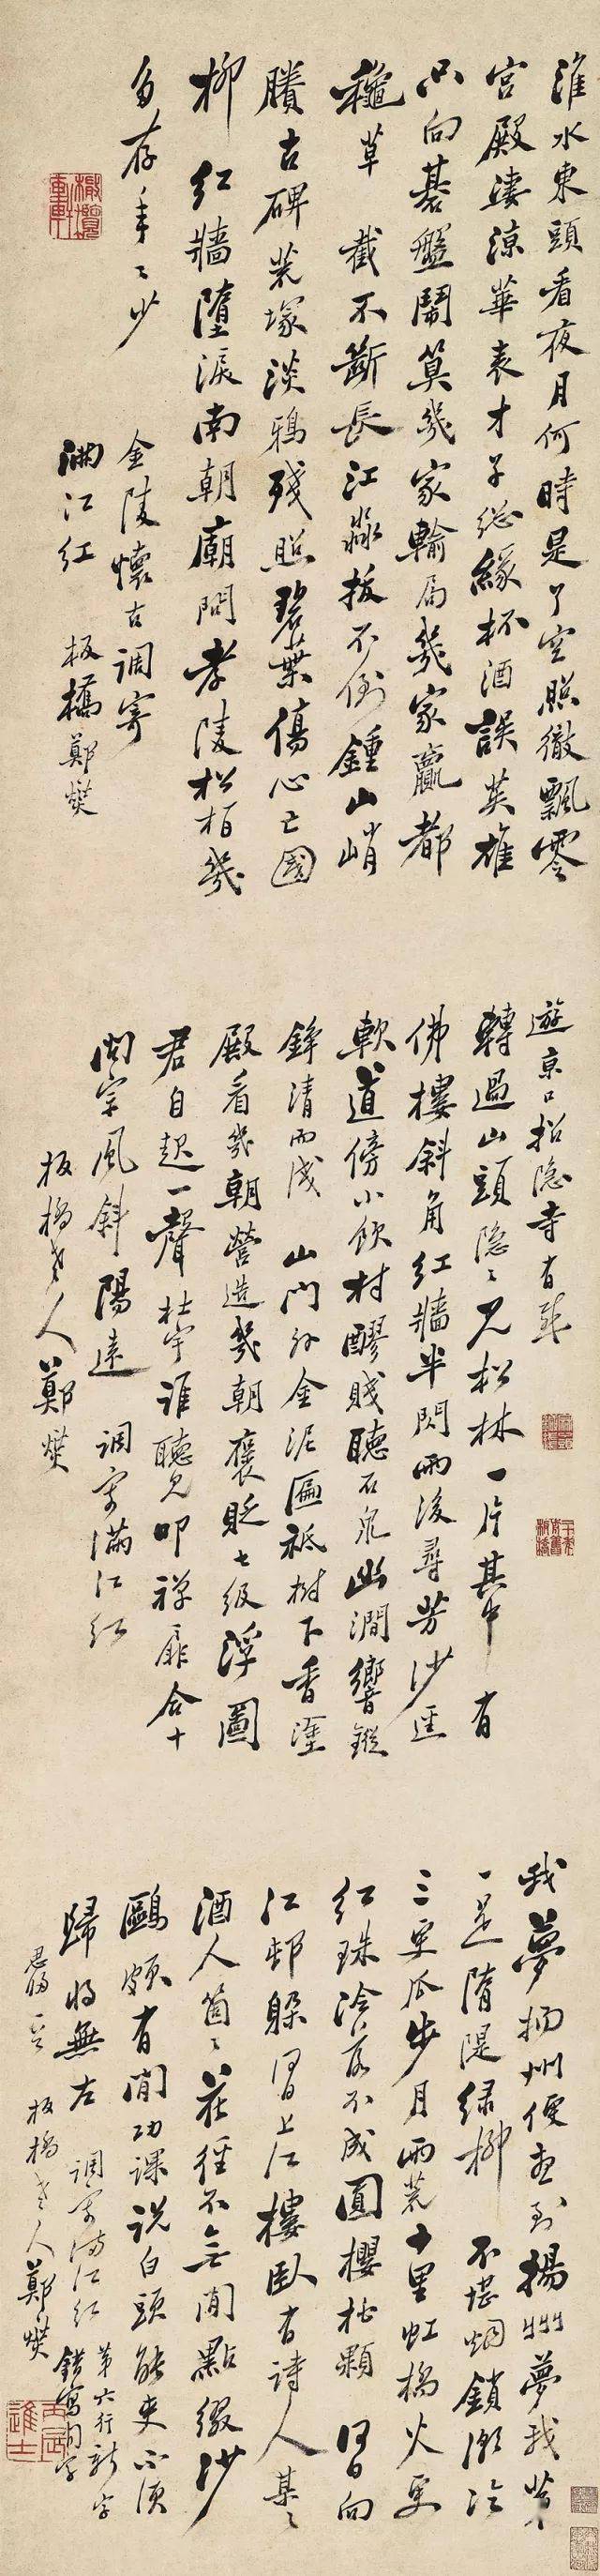 淮水東頭看夜月何時是了空照徹飄零
宮殿淒涼華表才子總緣杯酒誤英雄
只向碁盤鬧算幾家輸局幾家贏都
穐草 截不斷長江淼拔不倒鍾山峭
賸古碑荒塚淡鴉殘照碧葉傷心亡國
柳 紅牆墮淚南朝廟問孝陵松柏幾
多存年〻少
金陵懷古調寄
滿江紅 板橋鄭燮
遊京口招隱寺有感
轉過山頭隱〻見松林一片其中有
佛樓斜角紅牆半閃雨後尋芳沙逕
軟道傍小飲村醪賤聽石泉幽澗響鏦
錚清而淺 山門外金泥匾祇樹下香塗
殿看幾朝營造幾朝褒貶七級浮圖
君自起一聲杜宇誰聽見叩禪扉合十
問宗風斜陽遠 調寄滿江紅
板橋老人鄭燮
我夢揚州便想到揚州夢我第
一是隋隄綠柳 不堪烟鎖潮打
三更瓜步月雨荒十里虹橋火更
紅珠冷落不成圓櫻桃顆 何日向
江邨躲何日上江樓臥有詩人某〻
酒人箇〻花徑不無閒點綴沙
鷗頗有閒功課說白頭能更不須
歸將無左 調寄滿江紅 第六行新字
板橋老人鄭燮 錯寫閒字
丙辰進士